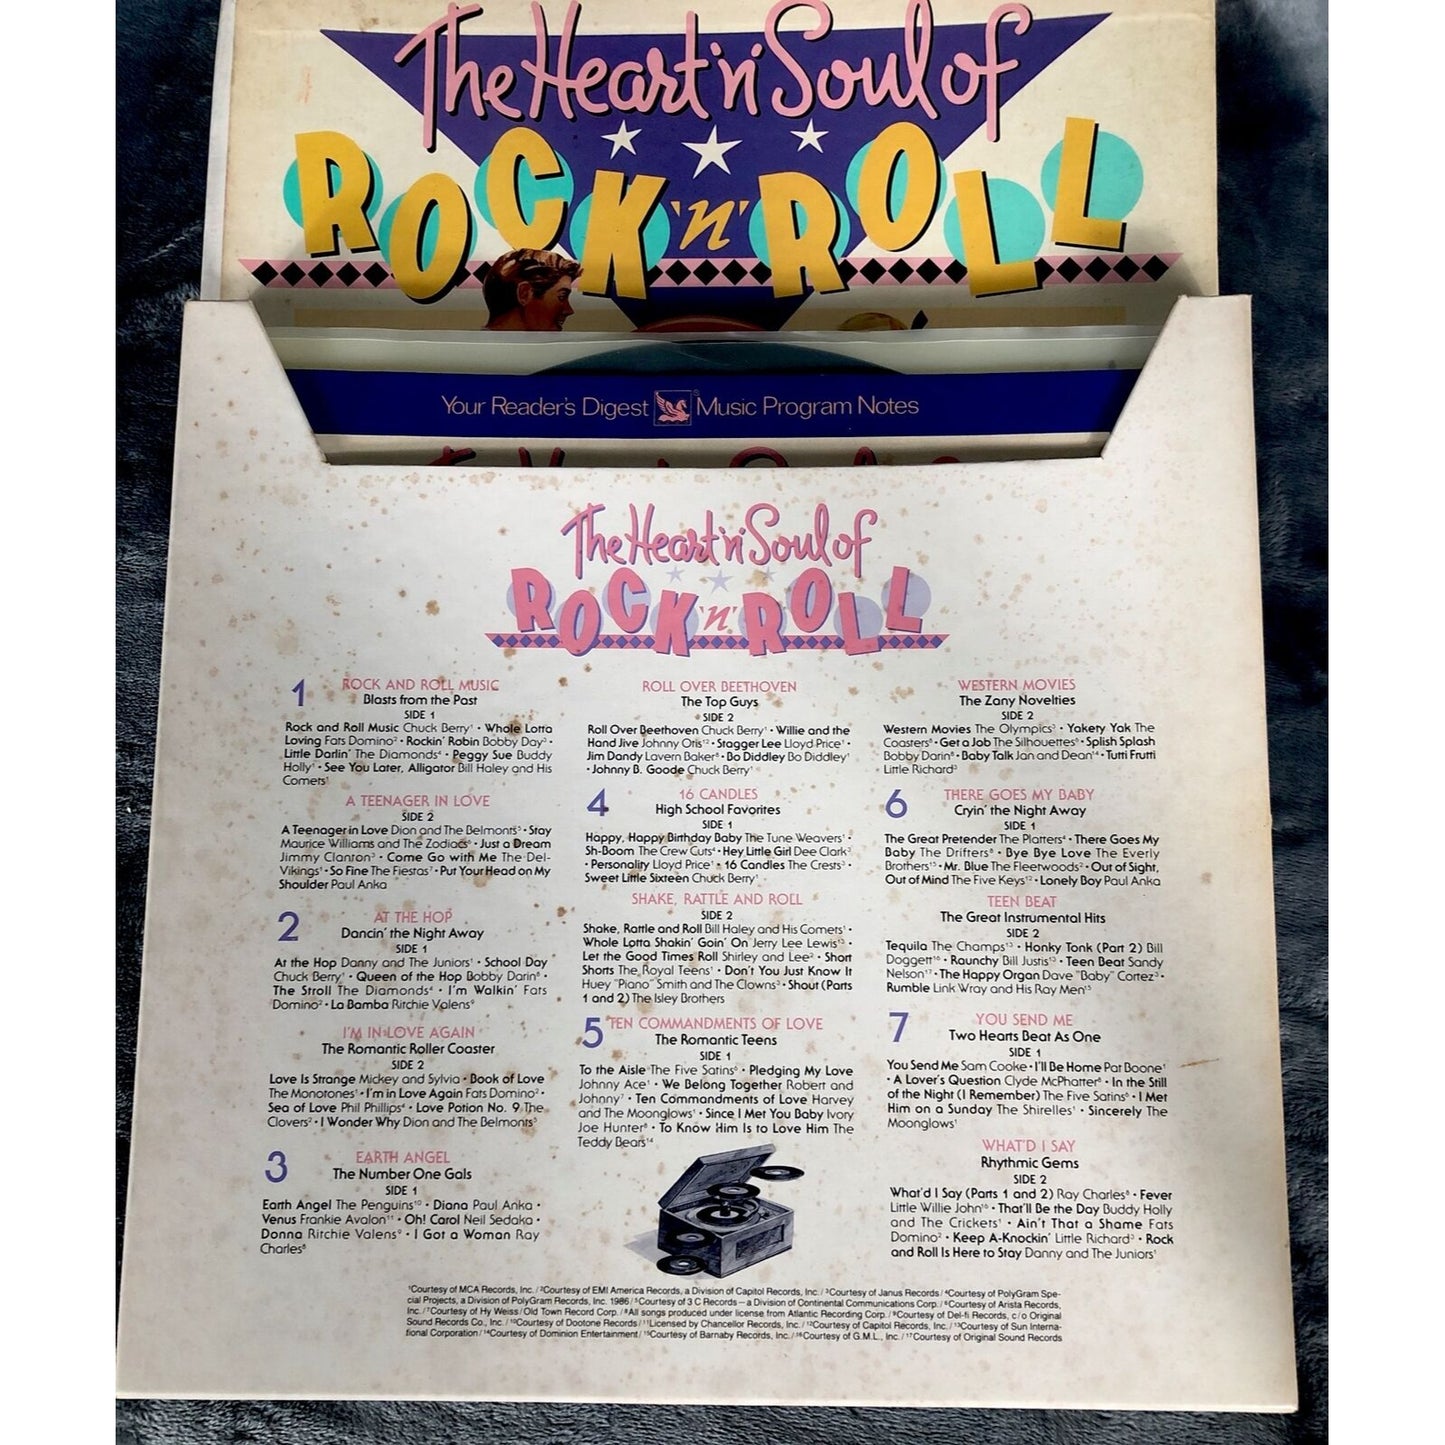 The Heart 'n' Soul of
ROCK 'n' ROLL
Your Reader's Digest Music Program Notes
The Heart 'n' Soul of
ROCK 'n' ROLL
1 ROCK AND ROLL MUSIC
Blasts from the Past
SIDE 1
Rock and Roll Music Chuck Berry¹ • Whole Lotta
Loving Fats Domino² • Rockin' Robin Bobby Day³ •
Little Darlin' The Diamonds⁴ • Peggy Sue Buddy
Holly¹ • See You Later, Alligator Bill Haley and His
Comets¹
A TEENAGER IN LOVE
SIDE 2
A Teenager in Love Dion and The Belmonts⁵ • Stay
Maurice Williams and The Zodiacs⁶ • Just a Dream
Jimmy Clanton³ • Come Go with Me The Del-
Vikings¹ • So Fine The Fiestas⁷ • Put Your Head on My
Shoulder Paul Anka
2 AT THE HOP
Dancin' the Night Away
SIDE 1
At the Hop Danny and The Juniors¹ • School Day
Chuck Berry¹ • Queen of the Hop Bobby Darin⁸ •
The Stroll The Diamonds⁴ • I'm Walkin' Fats
Domino² • La Bamba Ritchie Valens⁹
I'M IN LOVE AGAIN
The Romantic Roller Coaster
SIDE 2
Love Is Strange Mickey and Sylvia • Book of Love
The Monotones¹ • I'm in Love Again Fats Domino² •
Sea of Love Phil Phillips⁴ • Love Potion No. 9 The
Clovers² • I Wonder Why Dion and The Belmonts⁵
3 EARTH ANGEL
The Number One Gals
SIDE 1
Earth Angel The Penguins¹⁰ • Diana Paul Anka •
Venus Frankie Avalon¹¹ • Oh! Carol Neil Sedaka •
Donna Ritchie Valens⁹ • I Got a Woman Ray
Charles⁸
ROLL OVER BEETHOVEN
The Top Guys
SIDE 2
Roll Over Beethoven Chuck Berry¹ • Willie and the
Hand Jive Johnny Otis¹² • Stagger Lee Lloyd Price¹ •
Jim Dandy Lavern Baker⁸ • Bo Diddley Bo Diddley¹
• Johnny B. Goode Chuck Berry¹
4 16 CANDLES
High School Favorites
SIDE 1
Happy, Happy Birthday Baby The Tune Weavers¹ •
Sh-Boom The Crew Cuts⁴ • Hey Little Girl Dee Clark³
• Personality Lloyd Price¹ • 16 Candles The Crests³ •
Sweet Little Sixteen Chuck Berry¹
SHAKE, RATTLE AND ROLL
SIDE 2
Shake, Rattle and Roll Bill Haley and His Comets¹ •
Whole Lotta Shakin' Goin' On Jerry Lee Lewis¹³ •
Let the Good Times Roll Shirley and Lee² • Short
Shorts The Royal Teens¹ • Don't You Just Know It
Huey "Piano" Smith and The Clowns³ • Shout (Parts
1 and 2) The Isley Brothers
5 TEN COMMANDMENTS OF LOVE
The Romantic Teens
SIDE 1
To the Aisle The Five Satins⁶ • Pledging My Love
Johnny Ace¹ • We Belong Together Robert and
Johnny⁷ • Ten Commandments of Love Harvey
and The Moonglows¹ • Since I Met You Baby Ivory
Joe Hunter⁸ • To Know Him Is to Love Him The
Teddy Bears¹⁴
WESTERN MOVIES
The Zany Novelties
SIDE 2
Western Movies The Olympics³ • Yakety Yak The
Coasters⁸ • Get a Job The Silhouettes⁶ • Splish Splash
Bobby Darin⁸ • Baby Talk Jan and Dean¹⁴ • Tutti Frutti
Little Richard³
6 THERE GOES MY BABY
Cryin' the Night Away
SIDE 1
The Great Pretender The Platters⁴ • There Goes My
Baby The Drifters⁸ • Bye Bye Love The Everly
Brothers¹⁵ • Mr. Blue The Fleetwoods² • Out of Sight,
Out of Mind The Five Keys¹² • Lonely Boy Paul Anka
TEEN BEAT
The Great Instrumental Hits
SIDE 2
Tequila The Champs¹³ • Honky Tonk (Part 2) Bill
Doggett¹⁶ • Raunchy Bill Justis¹³ • Teen Beat Sandy
Nelson¹⁷ • The Happy Organ Dave "Baby" Cortez³ •
Rumble Link Wray and His Ray Men¹⁵
7 YOU SEND ME
Two Hearts Beat As One
SIDE 1
You Send Me Sam Cooke • I'll Be Home Pat Boone¹
• A Lover's Question Clyde McPhatter⁸ • In the Still
of the Night (I Remember) The Five Satins⁶ • I Met
Him on a Sunday The Shirelles¹ • Sincerely The
Moonglows¹
WHAT'D I SAY
Rhythmic Gems
SIDE 2
What'd I Say (Parts 1 and 2) Ray Charles⁸ • Fever
Little Willie John¹⁶ • That'll Be the Day Buddy Holly
and The Crickets¹ • Ain't That a Shame Fats
Domino² • Keep A-Knockin' Little Richard³ • Rock
and Roll Is Here to Stay Danny and The Juniors¹
¹Courtesy of MCA Records, Inc. / ²Courtesy of EMI America Records, a Division of Capitol Records, Inc. / ³Courtesy of Janus Records / ⁴Courtesy of PolyGram Spe-
cial Projects, a Division of PolyGram Records, Inc. 1986 / ⁵Courtesy of 3 C Records—a Division of Continental Communications Corp. / ⁶Courtesy of Arista Records,
Inc. / ⁷Courtesy of Hy Weiss/Old Town Record Corp. / ⁸All songs produced under license from Atlantic Recording Corp. / ⁹Courtesy of Del-fi Records, c/o Original
Sound Records Co., Inc. / ¹⁰Courtesy of Dootone Records / ¹¹Licensed by Chancellor Records, Inc. / ¹²Courtesy of Capitol Records, Inc. / ¹³Courtesy of Sun Interna-
tional Corporation / ¹⁴Courtesy of Dominion Entertainment / ¹⁵Courtesy of Barnaby Records, Inc. / ¹⁶Courtesy of G.M.L., Inc. / ¹⁷Courtesy of Original Sound Records